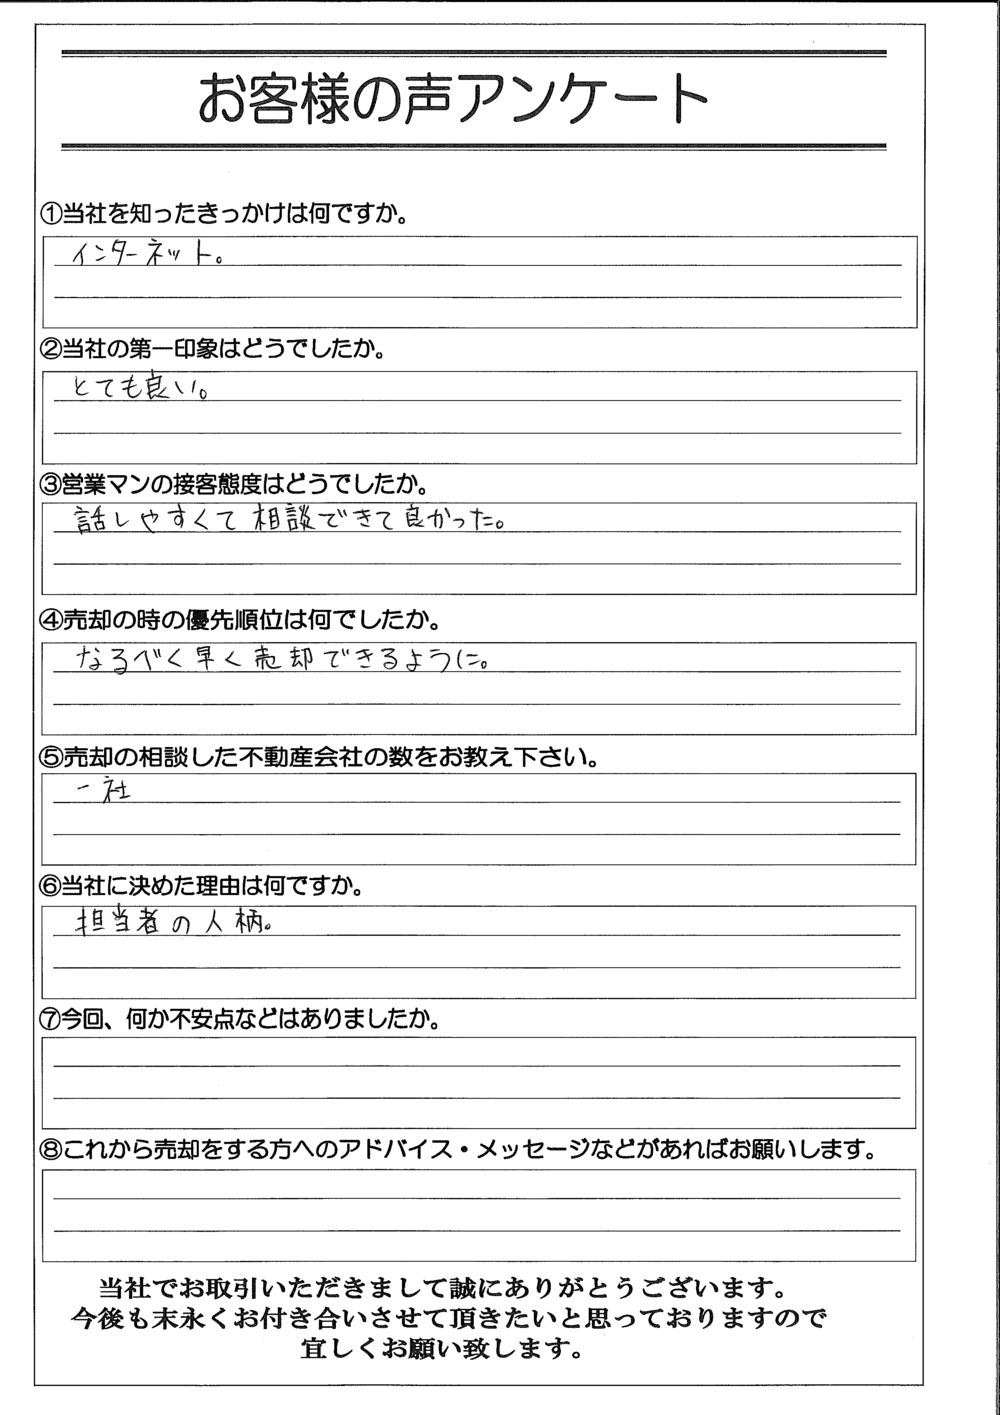 お客様の声アンケート
①当社を知ったきっかけは何ですか。
インターネット。
②当社の第一印象はどうでしたか。
とても良い。
③営業マンの接客態度はどうでしたか。
話しやすくて相談できて良かった。
④売却の時の優先順位は何でしたか。
なるべく早く売却できるように。
⑤売却の相談した不動産会社の数をお教え下さい。
一社
⑥当社に決めた理由は何ですか。
担当者の人柄。
⑦今回、何か不安点などはありましたか。
⑧これから売却をする方へのアドバイス・メッセージなどがあればお願いします。
当社でお取引いただきまして誠にありがとうございます。
今後も末永くお付き合いさせて頂きたいと思っておりますので
宜しくお願い致します。